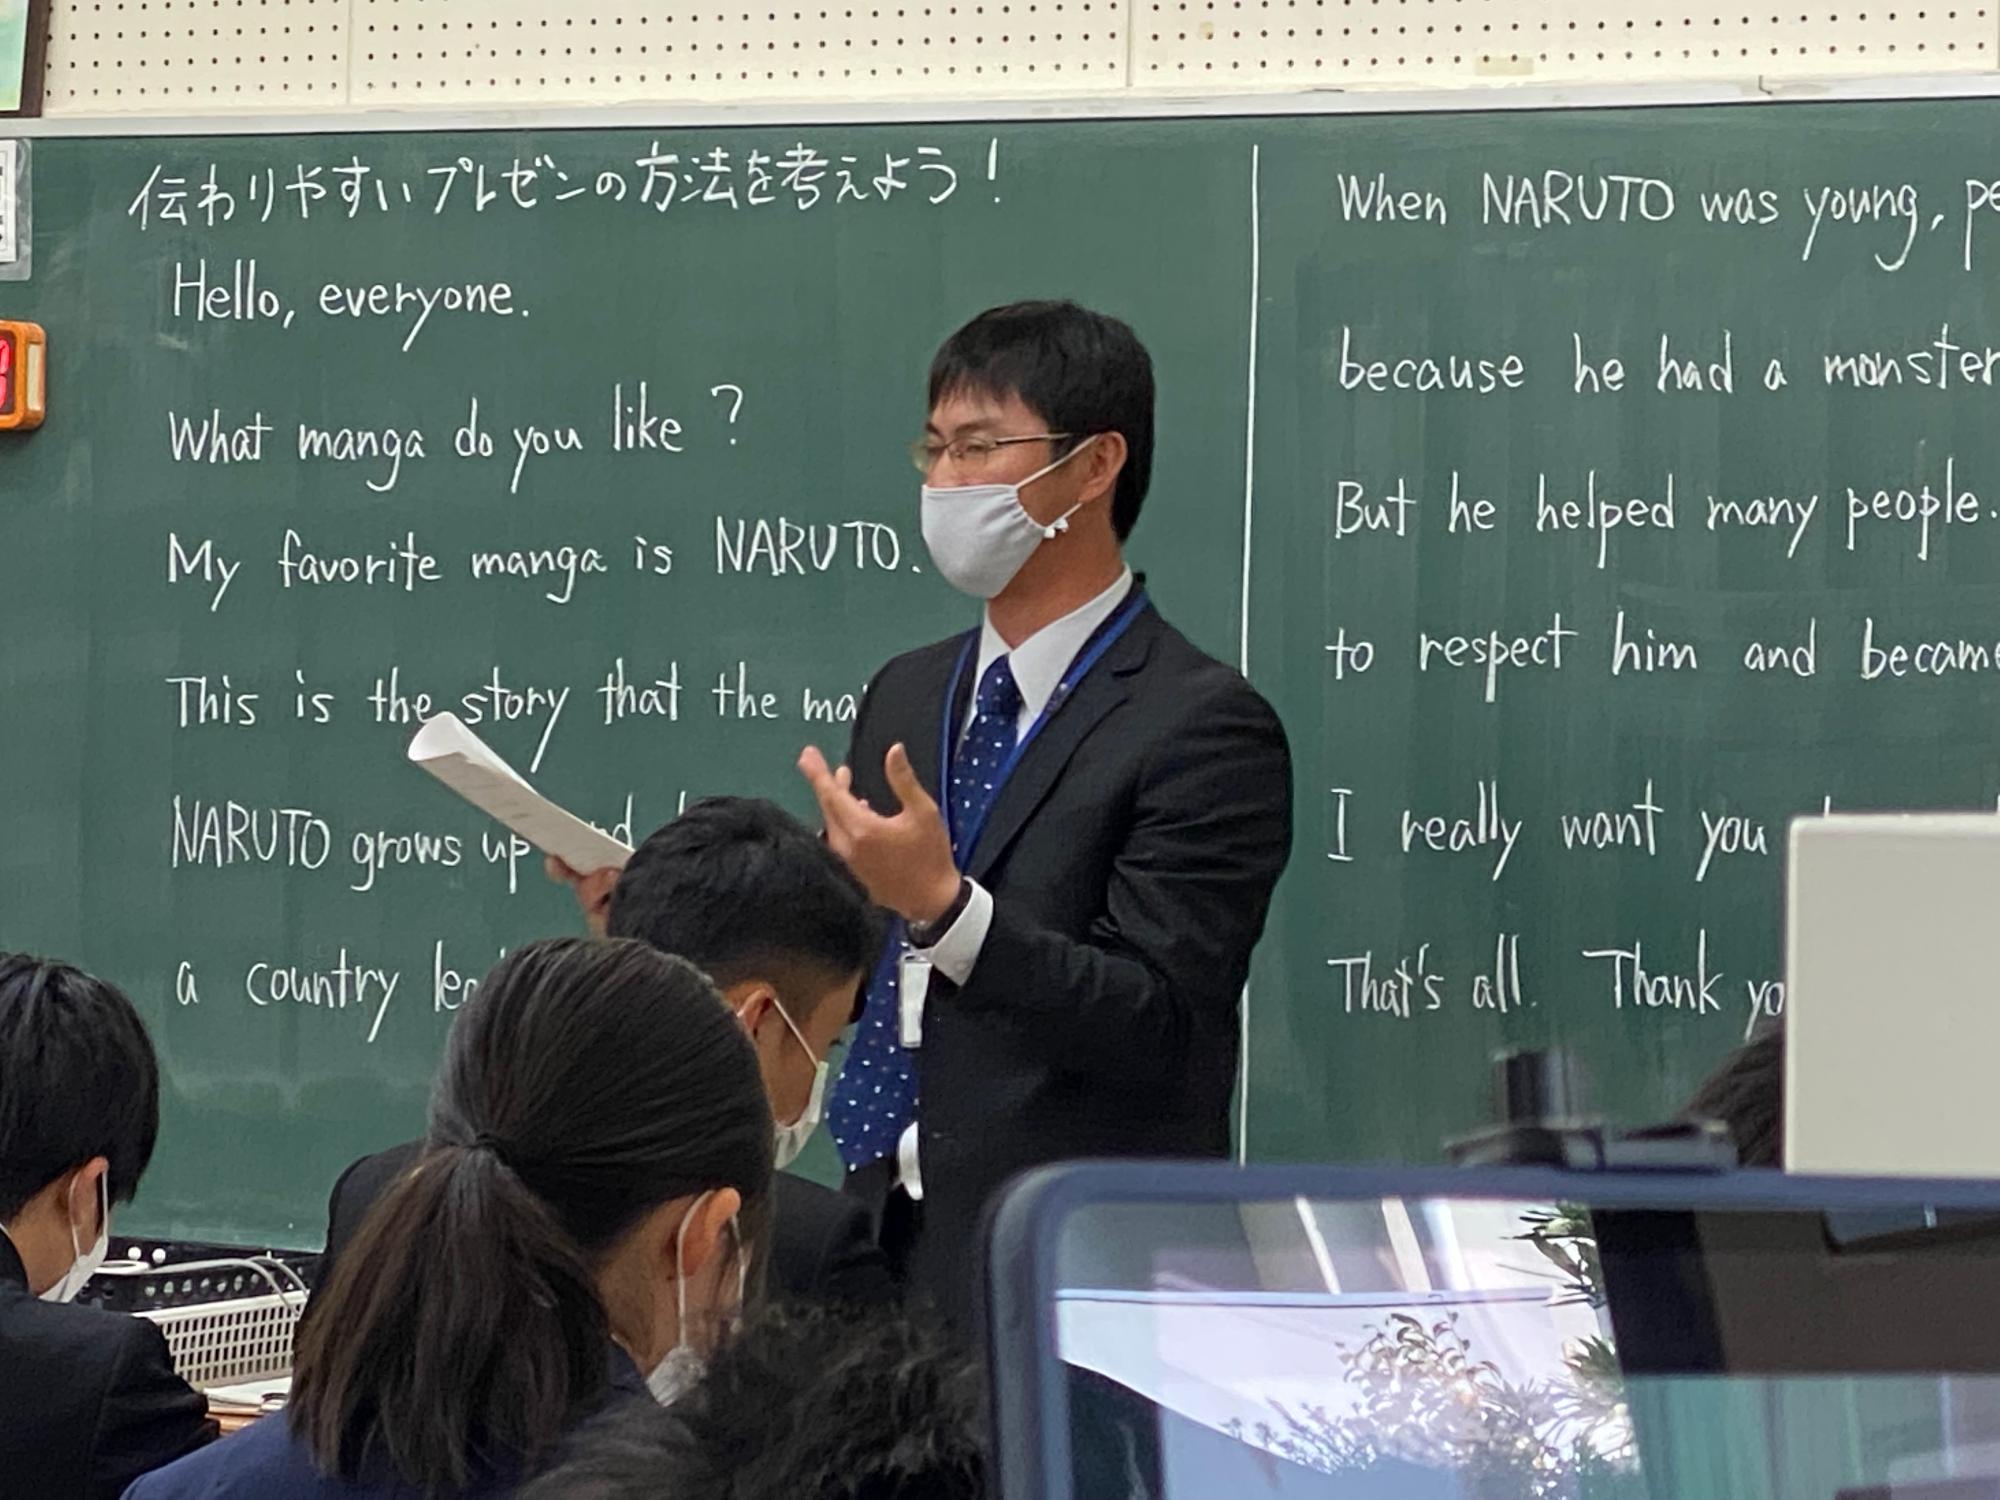 伝わりやすいプレゼンの方法を考えよう！
Hello, everyone.
What manga do you like ?
My favorite manga is NARUTO.
This is the story that the
NARUTO grows up
a country
When NARUTO was young,
because he had a monster
But he helped many people.
to respect him and became
I really want you
That's all. Thank